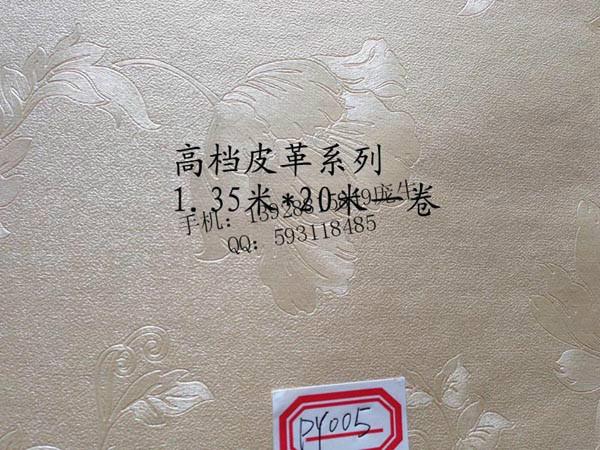 高档皮革系列
1.35米*20米一卷
手机:
QQ: 593118485
PY005